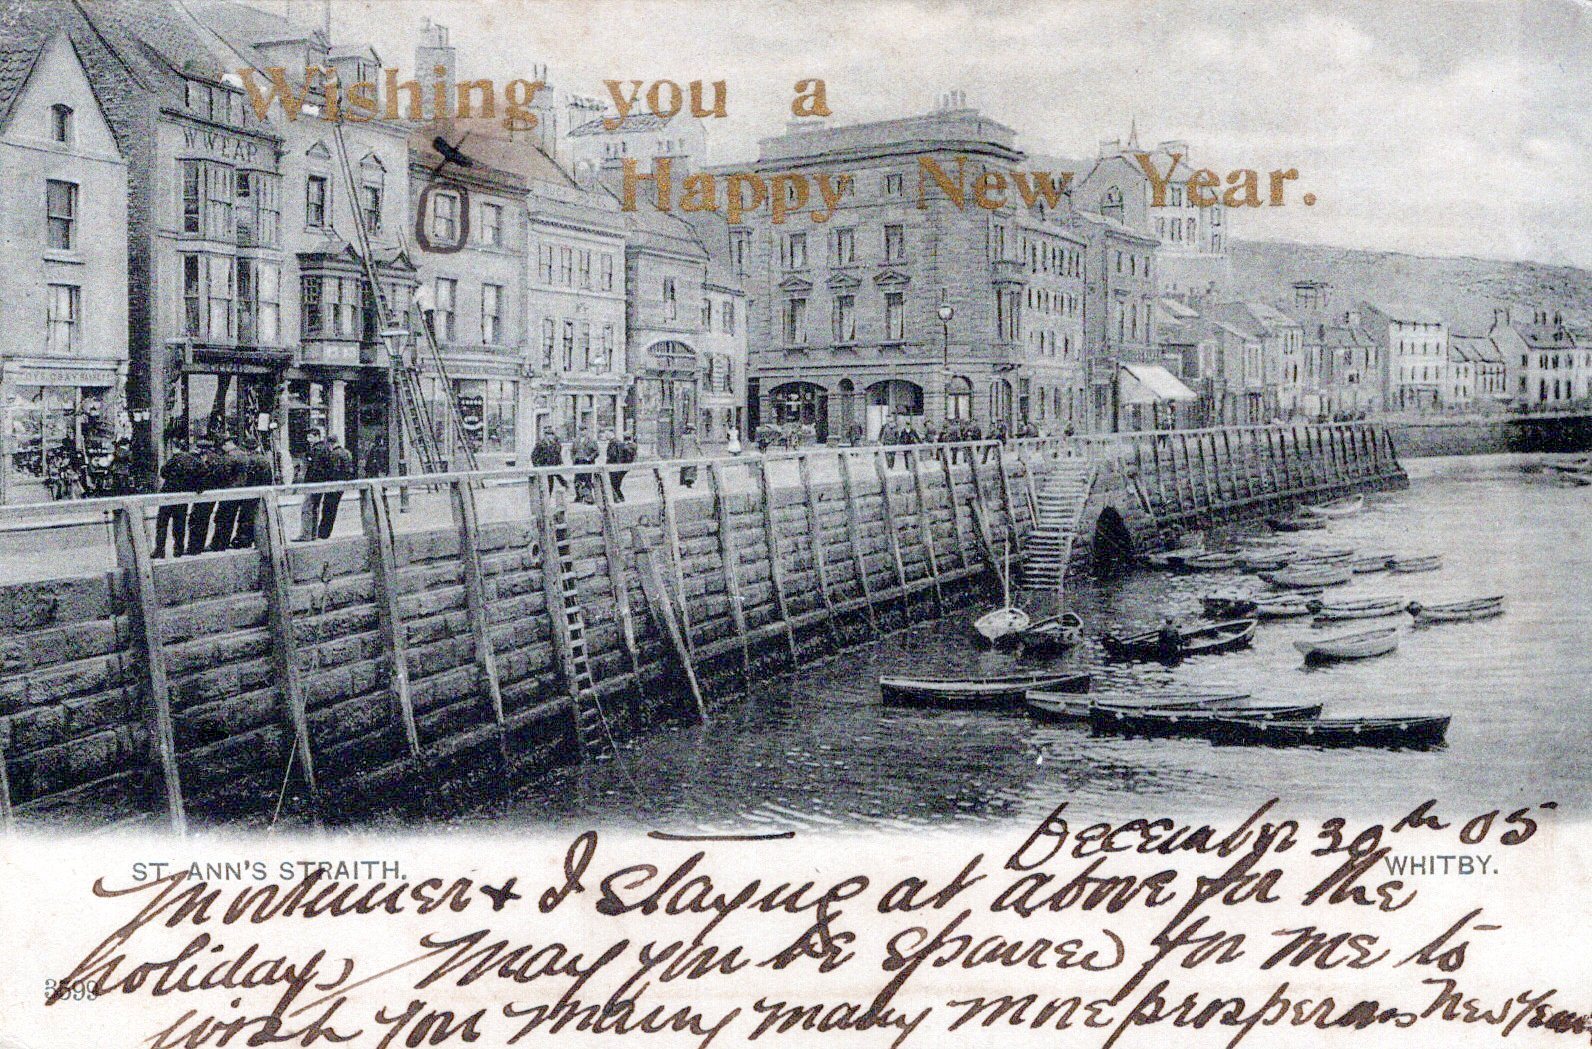 Wishing you a
Happy New Year.
W WEAR
December 30th 05
ST. ANN'S STRAITH.
WHITBY.
Mortimer + I staying at above for the
holidays May you be spared for me to
3599
wish you many many more prosperous New Years